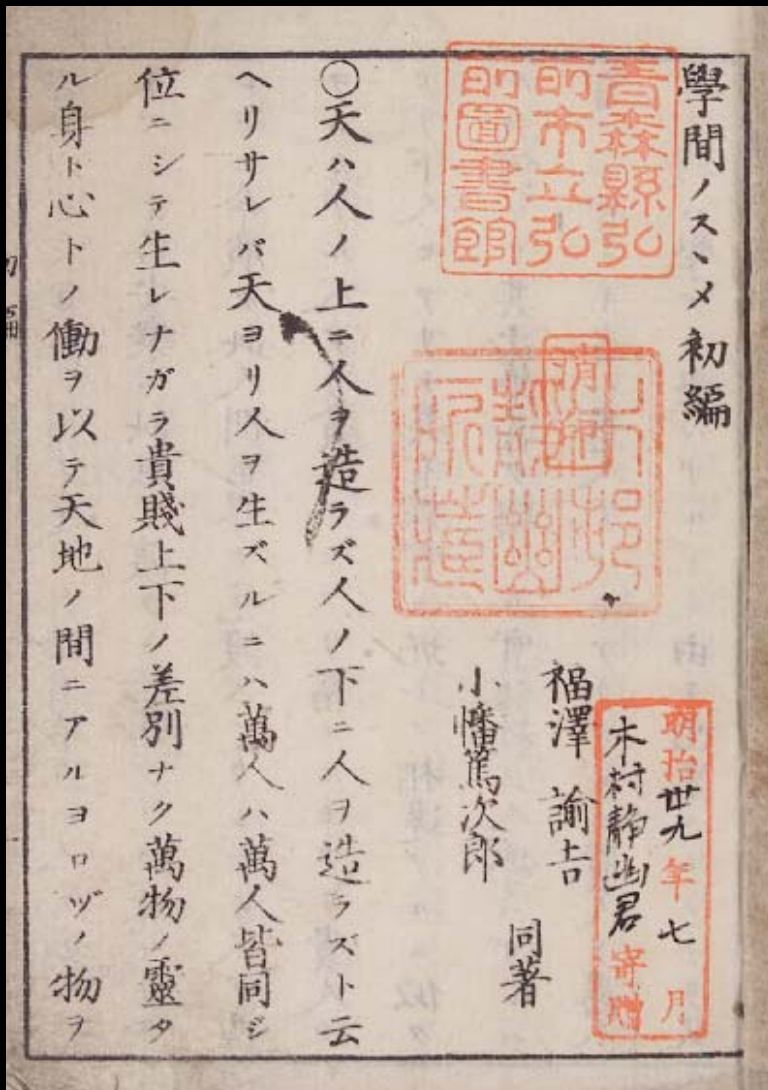 學問ノスヽメ 初編
青森縣弘
前市立弘
前圖書館
明治卅九年七月
木村靜幽君寄贈
福澤 諭吉
小幡篤次郎
同著
○天ハ人ノ上ニ人ヲ造ラズ人ノ下ニ人ヲ造ラズト云
ヘリサレバ天ヨリ人ヲ生ズルニハ萬人ハ萬人皆同ジ
位ニシテ生レナガラ貴賤上下ノ差別ナク萬物ノ靈タ
ル身ト心トノ働ヲ以テ天地ノ間ニアルヨロヅノ物ヲ